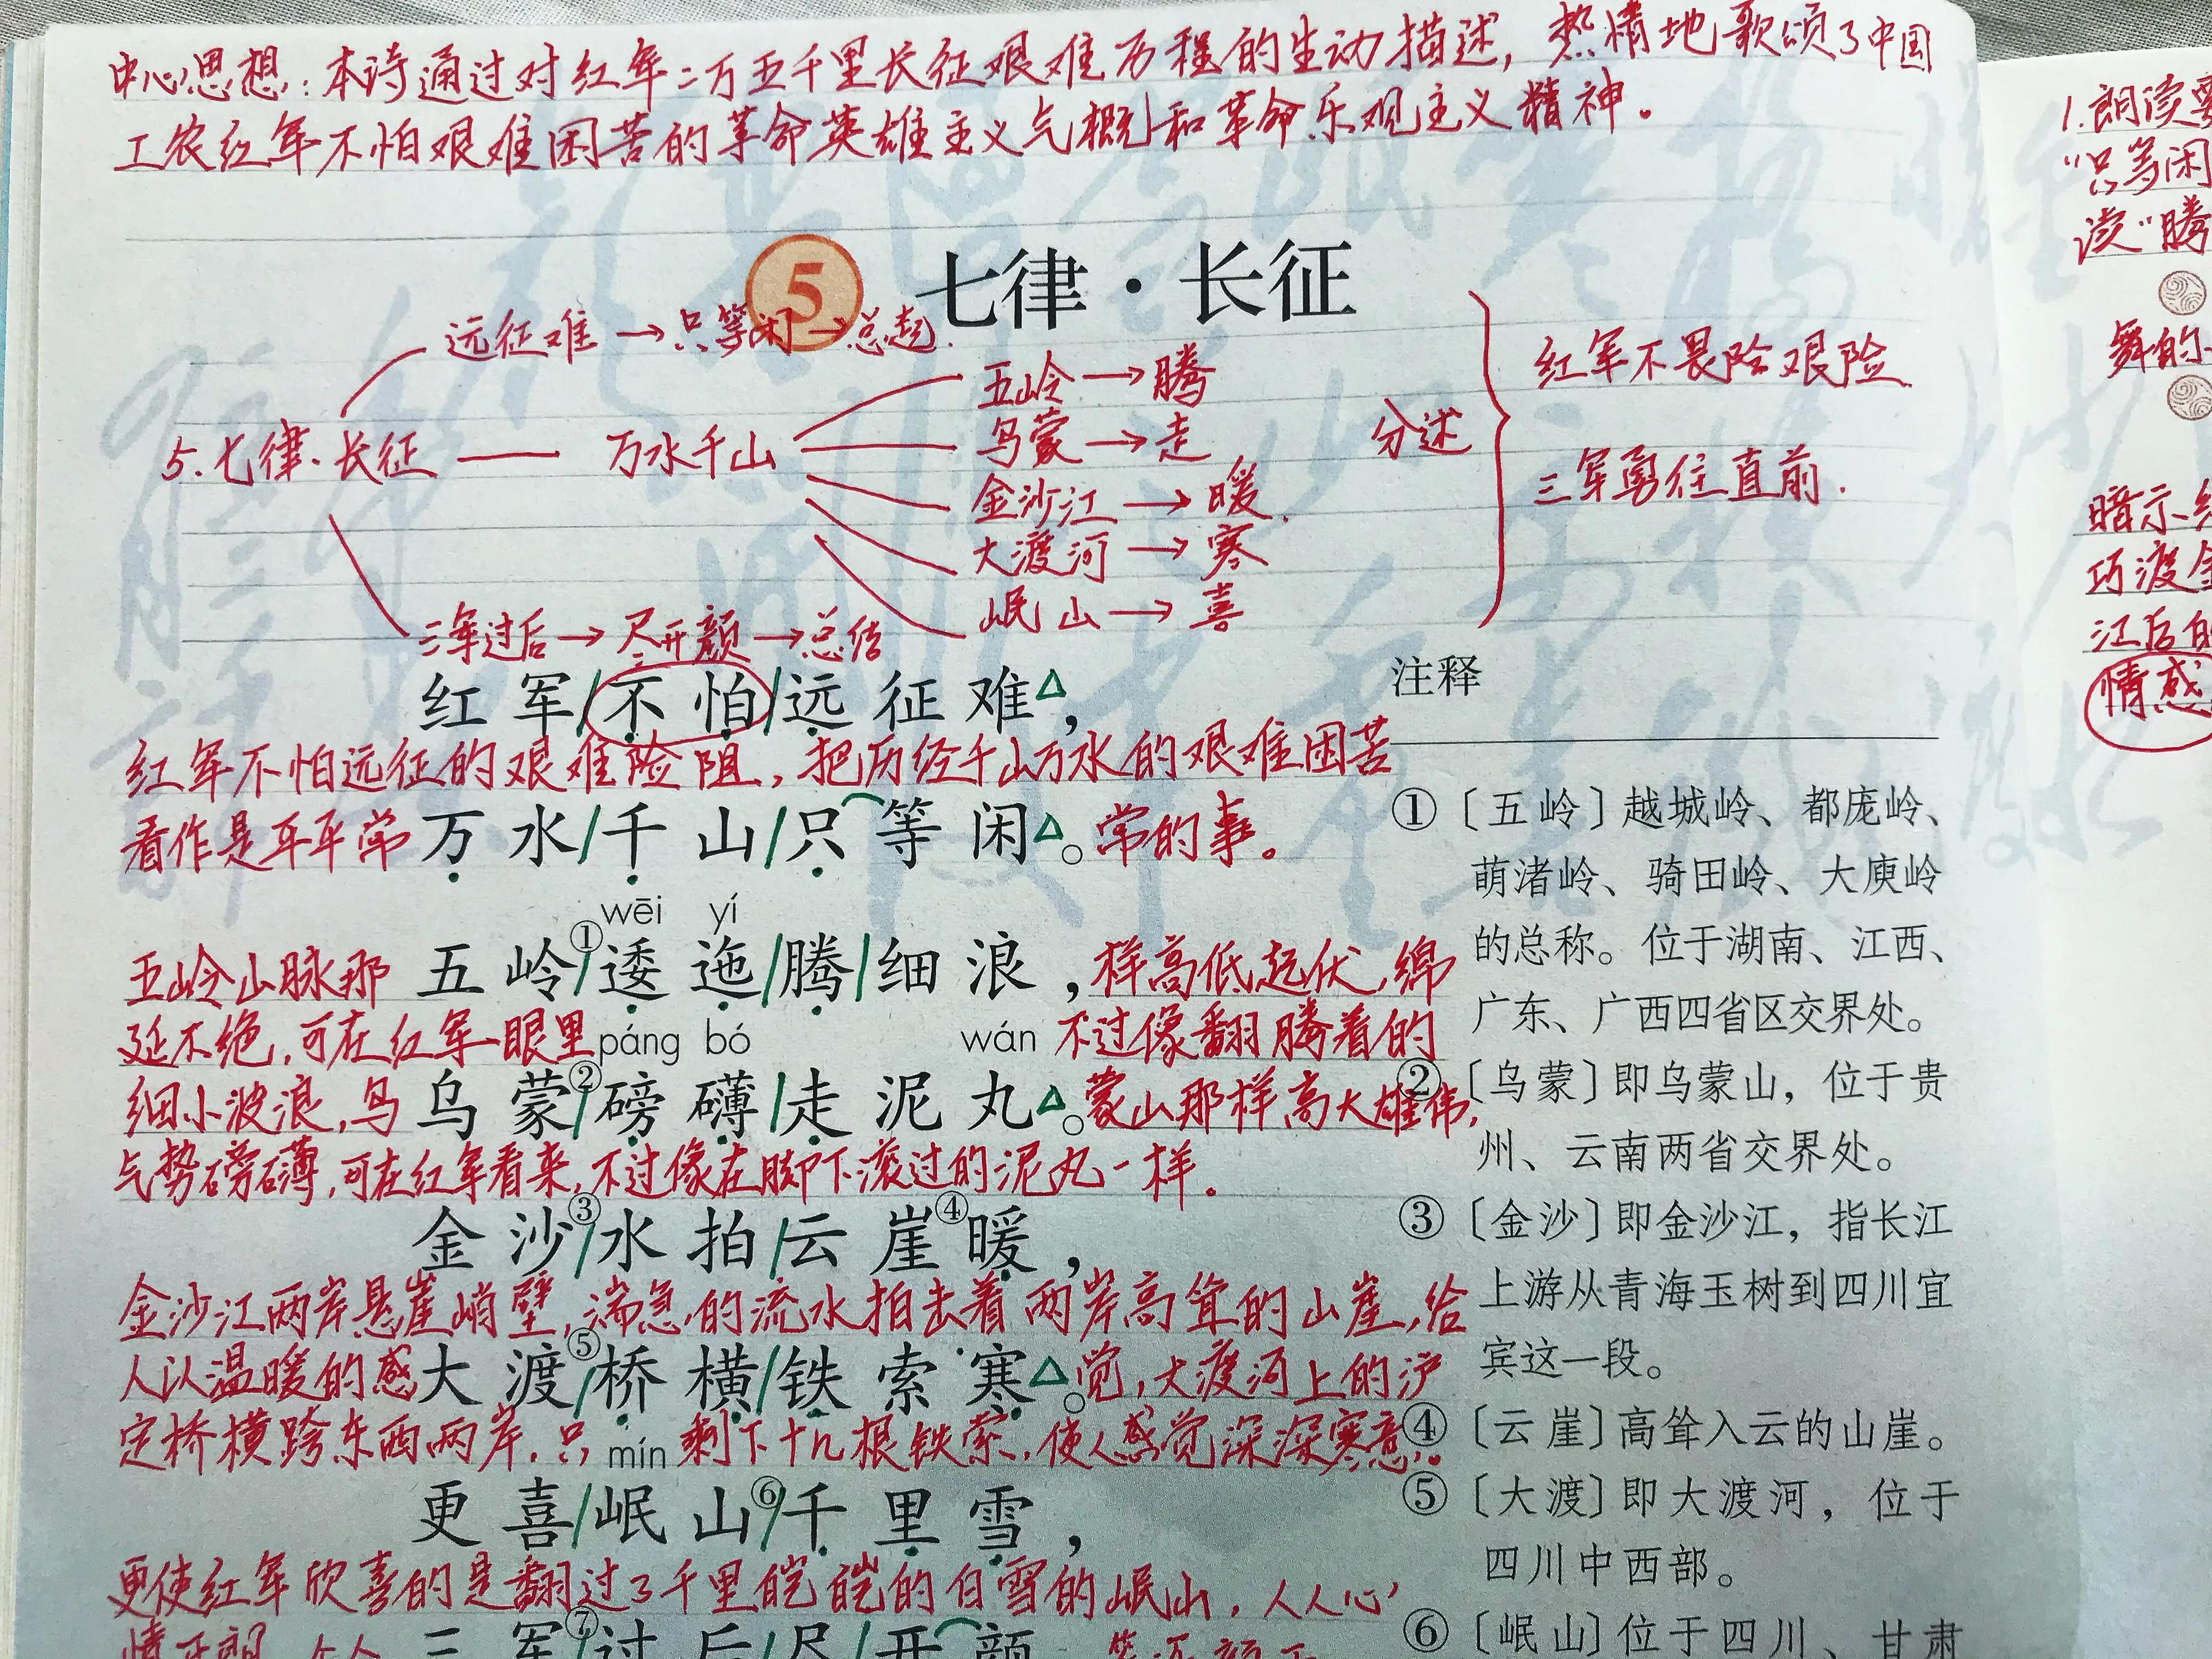 中心思想：本诗通过对红军二万五千里长征艰难历程的生动描述，热情地歌颂了中国
工农红军不怕艰难困苦的革命英雄主义气概和革命乐观主义精神。
5 七律·长征
远征难→只等闲→总起.
五岭→腾
乌蒙→走
5.七律.长征
万水千山
金沙江→暖.
大渡河→寒
岷山→喜
三军过后→尽开颜→总结
分述
红军不畏险艰险.
三军勇往直前.
红军/不怕/远征难△，
红军不怕远征的艰难险阻，把历经千山万水的艰难困苦
看作是平平常
万水/千山/只等闲△。
常的事。
wēi yí
五岭山脉那
五岭①/逶迤/腾/细浪，
样高低起伏,绵
延不绝,可在红军眼里
páng bó wán
不过像翻腾着的
细小波浪,乌
乌蒙②/磅礴/走泥丸△。
蒙山那样高大雄伟,
气势磅礴,可在红军看来,不过像在脚下滚过的泥丸一样。
金沙③/水拍/云崖④暖，
金沙江两岸悬崖峭壁,湍急的流水拍击着两岸高耸的山崖,给
人以温暖的感
大渡⑤/桥横/铁索寒△。
觉,大渡河上的泸
定桥横跨东西两岸.只
mín
剩下十几根铁索,使人感觉深深寒意。
更喜/岷山⑥/千里雪，
更使红军欣喜的是翻过了千里皑皑的白雪的岷山,人人心
三军⑦/过后/尽/开颜
注释
①〔五岭〕越城岭、都庞岭、
萌渚岭、骑田岭、大庾岭
的总称。位于湖南、江西、
广东、广西四省区交界处。
②〔乌蒙〕即乌蒙山，位于贵
州、云南两省交界处。
③〔金沙〕即金沙江，指长江
上游从青海玉树到四川宜
宾这一段。
④〔云崖〕高耸入云的山崖。
⑤〔大渡〕即大渡河，位于
四川中西部。
⑥〔岷山〕位于四川、甘肃
1.朗读
“只等闲
读“腾
舞的
暗示
巧渡
江后的
情感